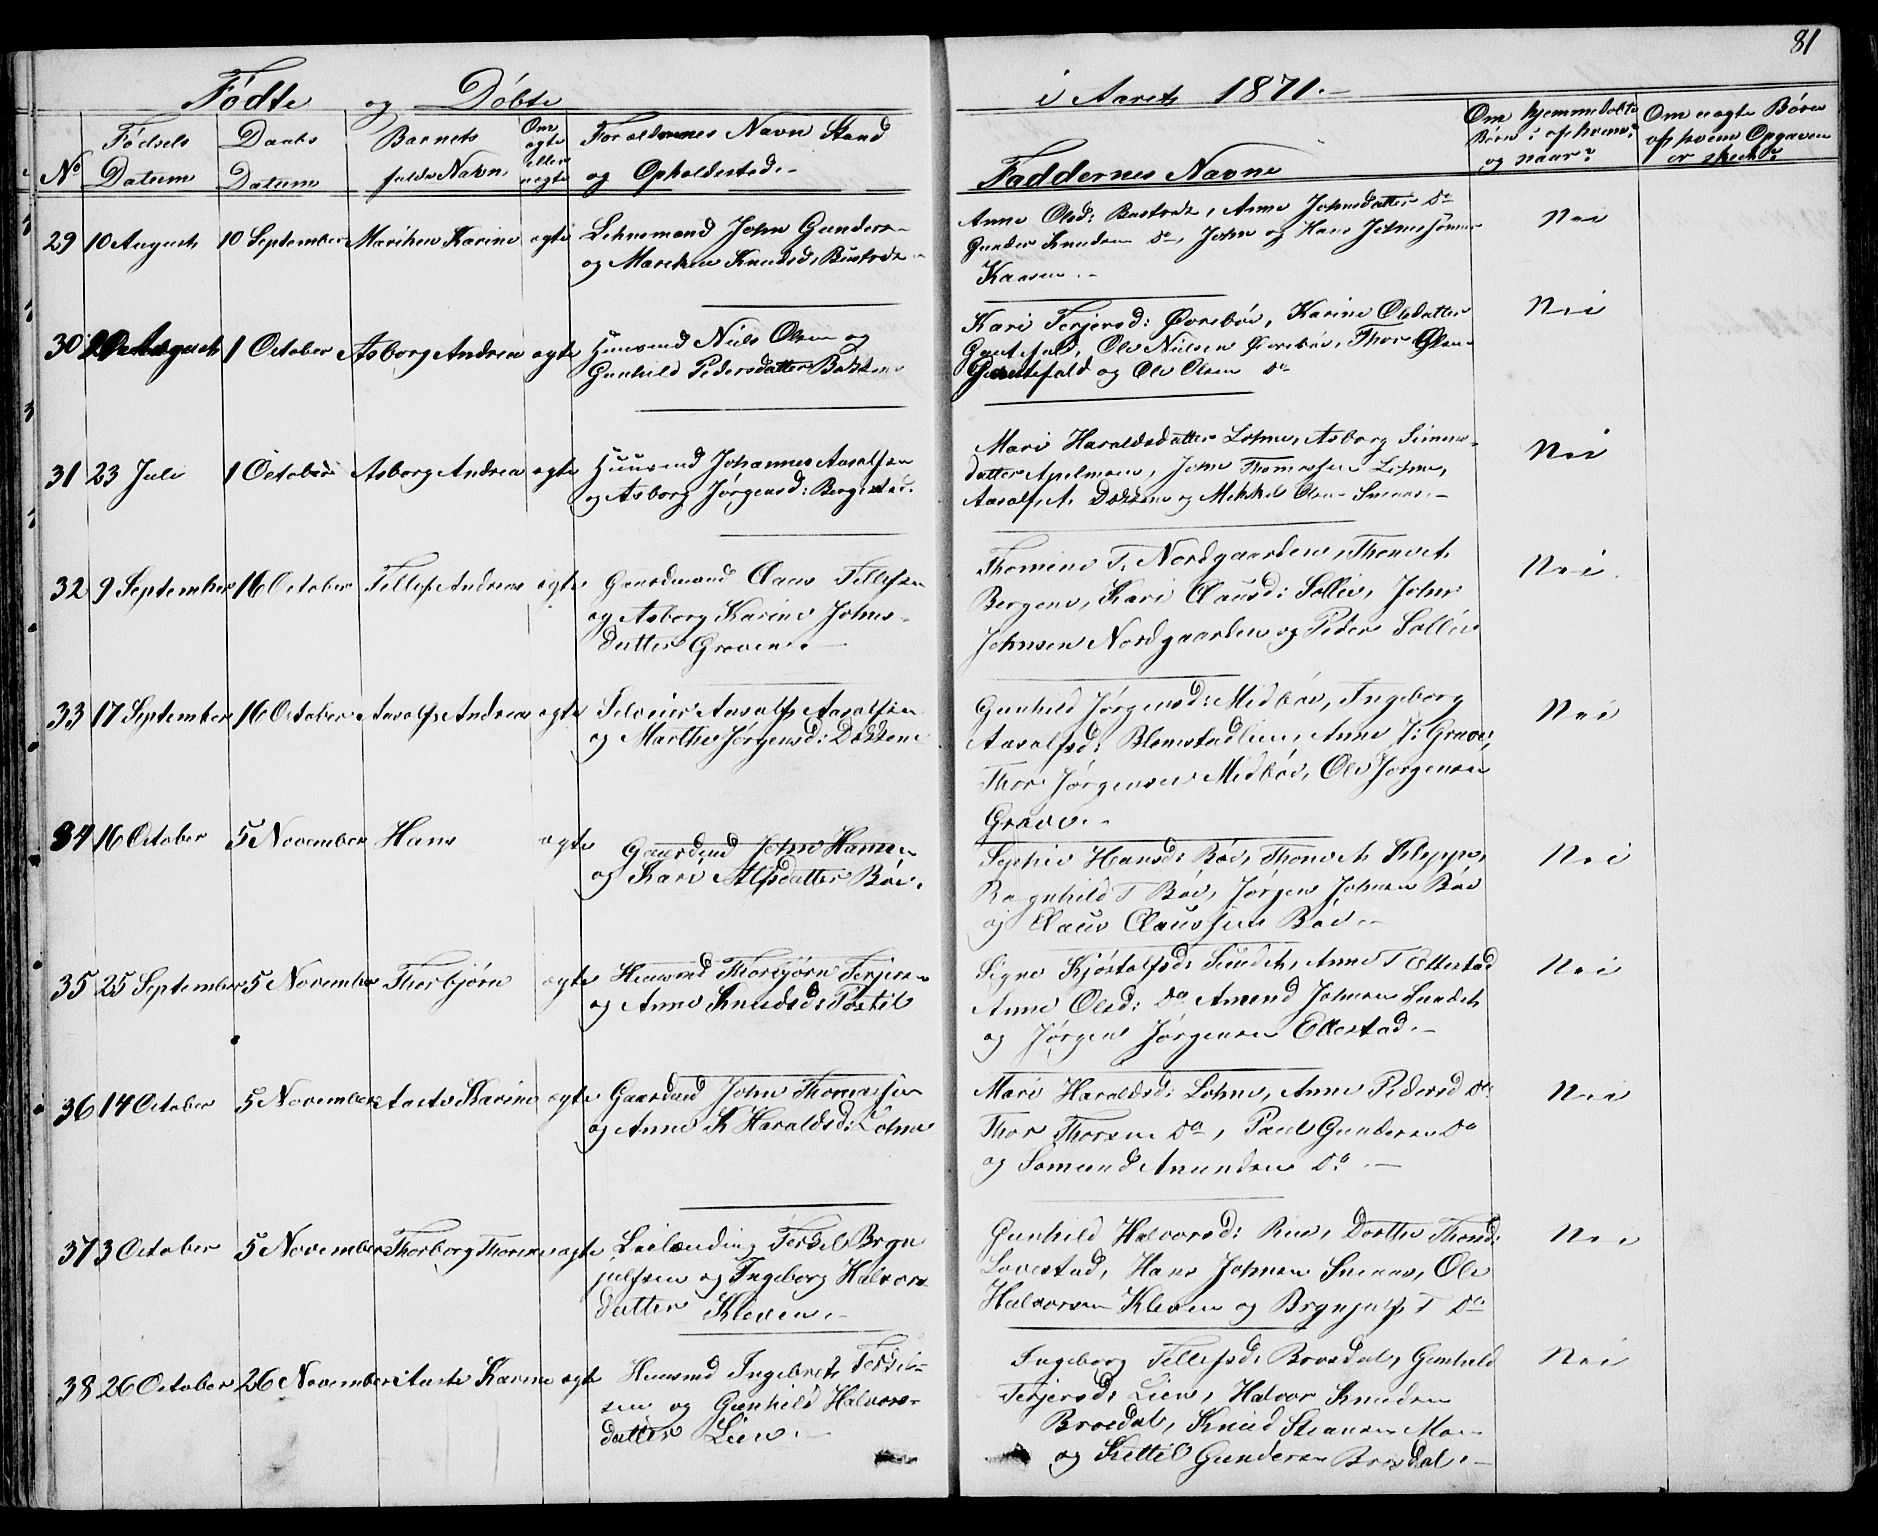 81
Fødte og Døbte i Aaret 1871.-
No
Fødsels Datum
Daabs Datum
Barnets fulde Navn
Om ægte eller uægte
Forældrenes Navn Stand
og Opholdssted.-
Faddernes Navne
Om hjemmedøbte
Børn? af hvem?
og naar?
Om uægte Børn
af hvem Opgaven
er skeet?
29 10 August 10 September Marthea Karine ægte
Lehnsmand John Gunders-
og Marthea Knudsd: Bustrak
Anne Olsd: Bustrak, Anne Johnsdatter Do
Gunder Knudsen Do, John og Hans Johnssønner
Kaasen.-
Nei
30 August 1 October Asborg Andrea ægte
Huusmd Niels Olsen og
Gunhild Pedersdatter Bakken
Kari Terjersd: Øvrebøe, Karine Olsdatter
Gautefald, Ole Nielsen Øvrebøe, Thor Olsen
Gautefald og Ole Olsen Do
Nei
31 23 Juli 1 October Asborg Andrea ægte
Huusmd Johannes Aasolfsen
og Asborg Jørgensd: Bergestad.
Mari Haraldsdatter Lohne, Asborg Simons-
datter Apelmoen, John Thomessen Lohne,
Aasolf A. Dokken og Mikkel Olsen Sneaas.-
Nei
32 9 September 16 October Tellef Andreas ægte
Gaardmand Claus Tellefsen
og Asborg Karine Johns-
datter Graven.-
Thomine T. Nordgaarden, Thone A.
Bergene, Kari Clausd: Sollie, John
Johnsen Nordgaarden og Peder Sollie
Nei.
33 17 September 16 October Aasolf Andreas ægte
Selveier Aasolf Aasolfsen
og Marthe Jørgensd: Dokken
Gunhild Jørgensd: Midbøe, Ingeborg
Aasolfsd: Blomstadlien, Anne J: Grave,
Thor Jørgensen Midbøe, Ole Jørgensen
Grave.-
Nei
34 16 October 5 November Hans ægte
Gaardmd John Hansen
og Kari Alfsdatter Bøe.
Sophie Hansd: Bøe, Thone A. Kleppe,
Ragnhild T Bøe, Jørgen Johnsen Bøe
og Claus Claussen Bøe.-
Nei
35 25 September 5 November Thorbjørn ægte
Huusmd Thorbjørn Terjesen
og Anne Knudsd: Tostil
Signe Kjøstolfsd: Sundet, Anne T Ettestad
Anne Olsd: Do Amund Johnsen Sundet
og Jørgen Jørgensen Ettestad.-
Nei
36 14 October 5 November Aaste Karine ægte
Gaardmd John Thomessen
og Anne K Haraldsd: Lohne
Mari Haraldsd: Lohne, Anne Pedersd Do
Thor Thorsen Do, Paul Gundersen Do
og Somund Amundsen Do.-
Nei
37 3 October 5 November Thorborg Thorine ægte
Leilænding Terkel Bryn
julfsen og Ingeborg Halvors-
datter Kleven.-
Gunhild Halvorsd: Riis, Dorthe Thorsd:
Lovestad, Hans Johnsen Sneaas, Ole
Halvorsen Kleven og Brynjulf T Do
Nei
38 26 October 26 November Aaste Karine ægte
Huusmd Ingebret Terkel-
sen og Gunhild Halvors-
datter Lien.-
Ingeborg Tellefsd: Brosdal, Gunhild
Terjersd: Lien, Halvor Knudsen
Brosdal, Knud Steansen Moe
og Kittil Gundersen Brosdal.-
Nei